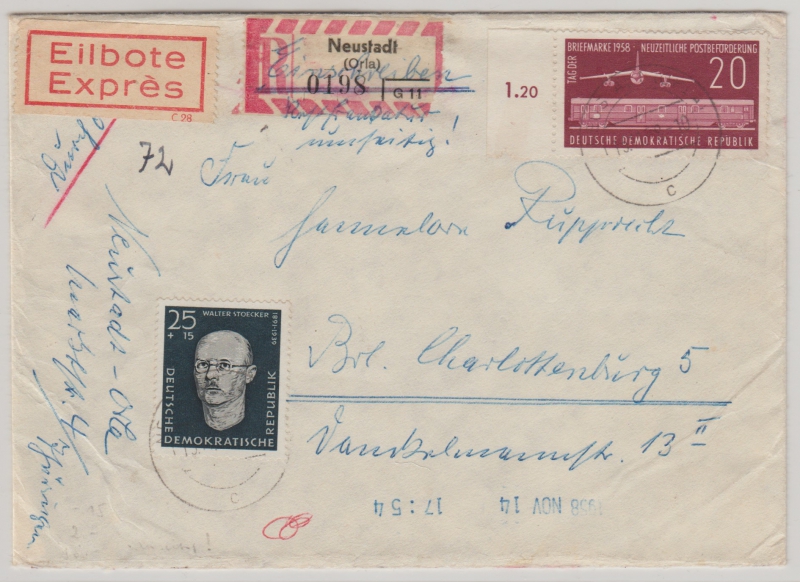 Eilbote
Exprès
C 28
Neustadt
(Orla)
0198
G 11
Einschreiben
umseitig!
1.20
TAG DER BRIEFMARKE 1958 NEUZEITLICHE POSTBEFÖRDERUNG
20
DEUTSCHE DEMOKRATISCHE REPUBLIK
c
72
Frau
Hannelore Rupprecht
Brl. Charlottenburg 5
Danckelmannstr. 13 II
Neustadt-Orla
Thüringen
25
+ 15
WALTER STOECKER
1891-1939
DEUTSCHE
DEMOKRATISCHE
REPUBLIK
c
1958 NOV 14 17:54